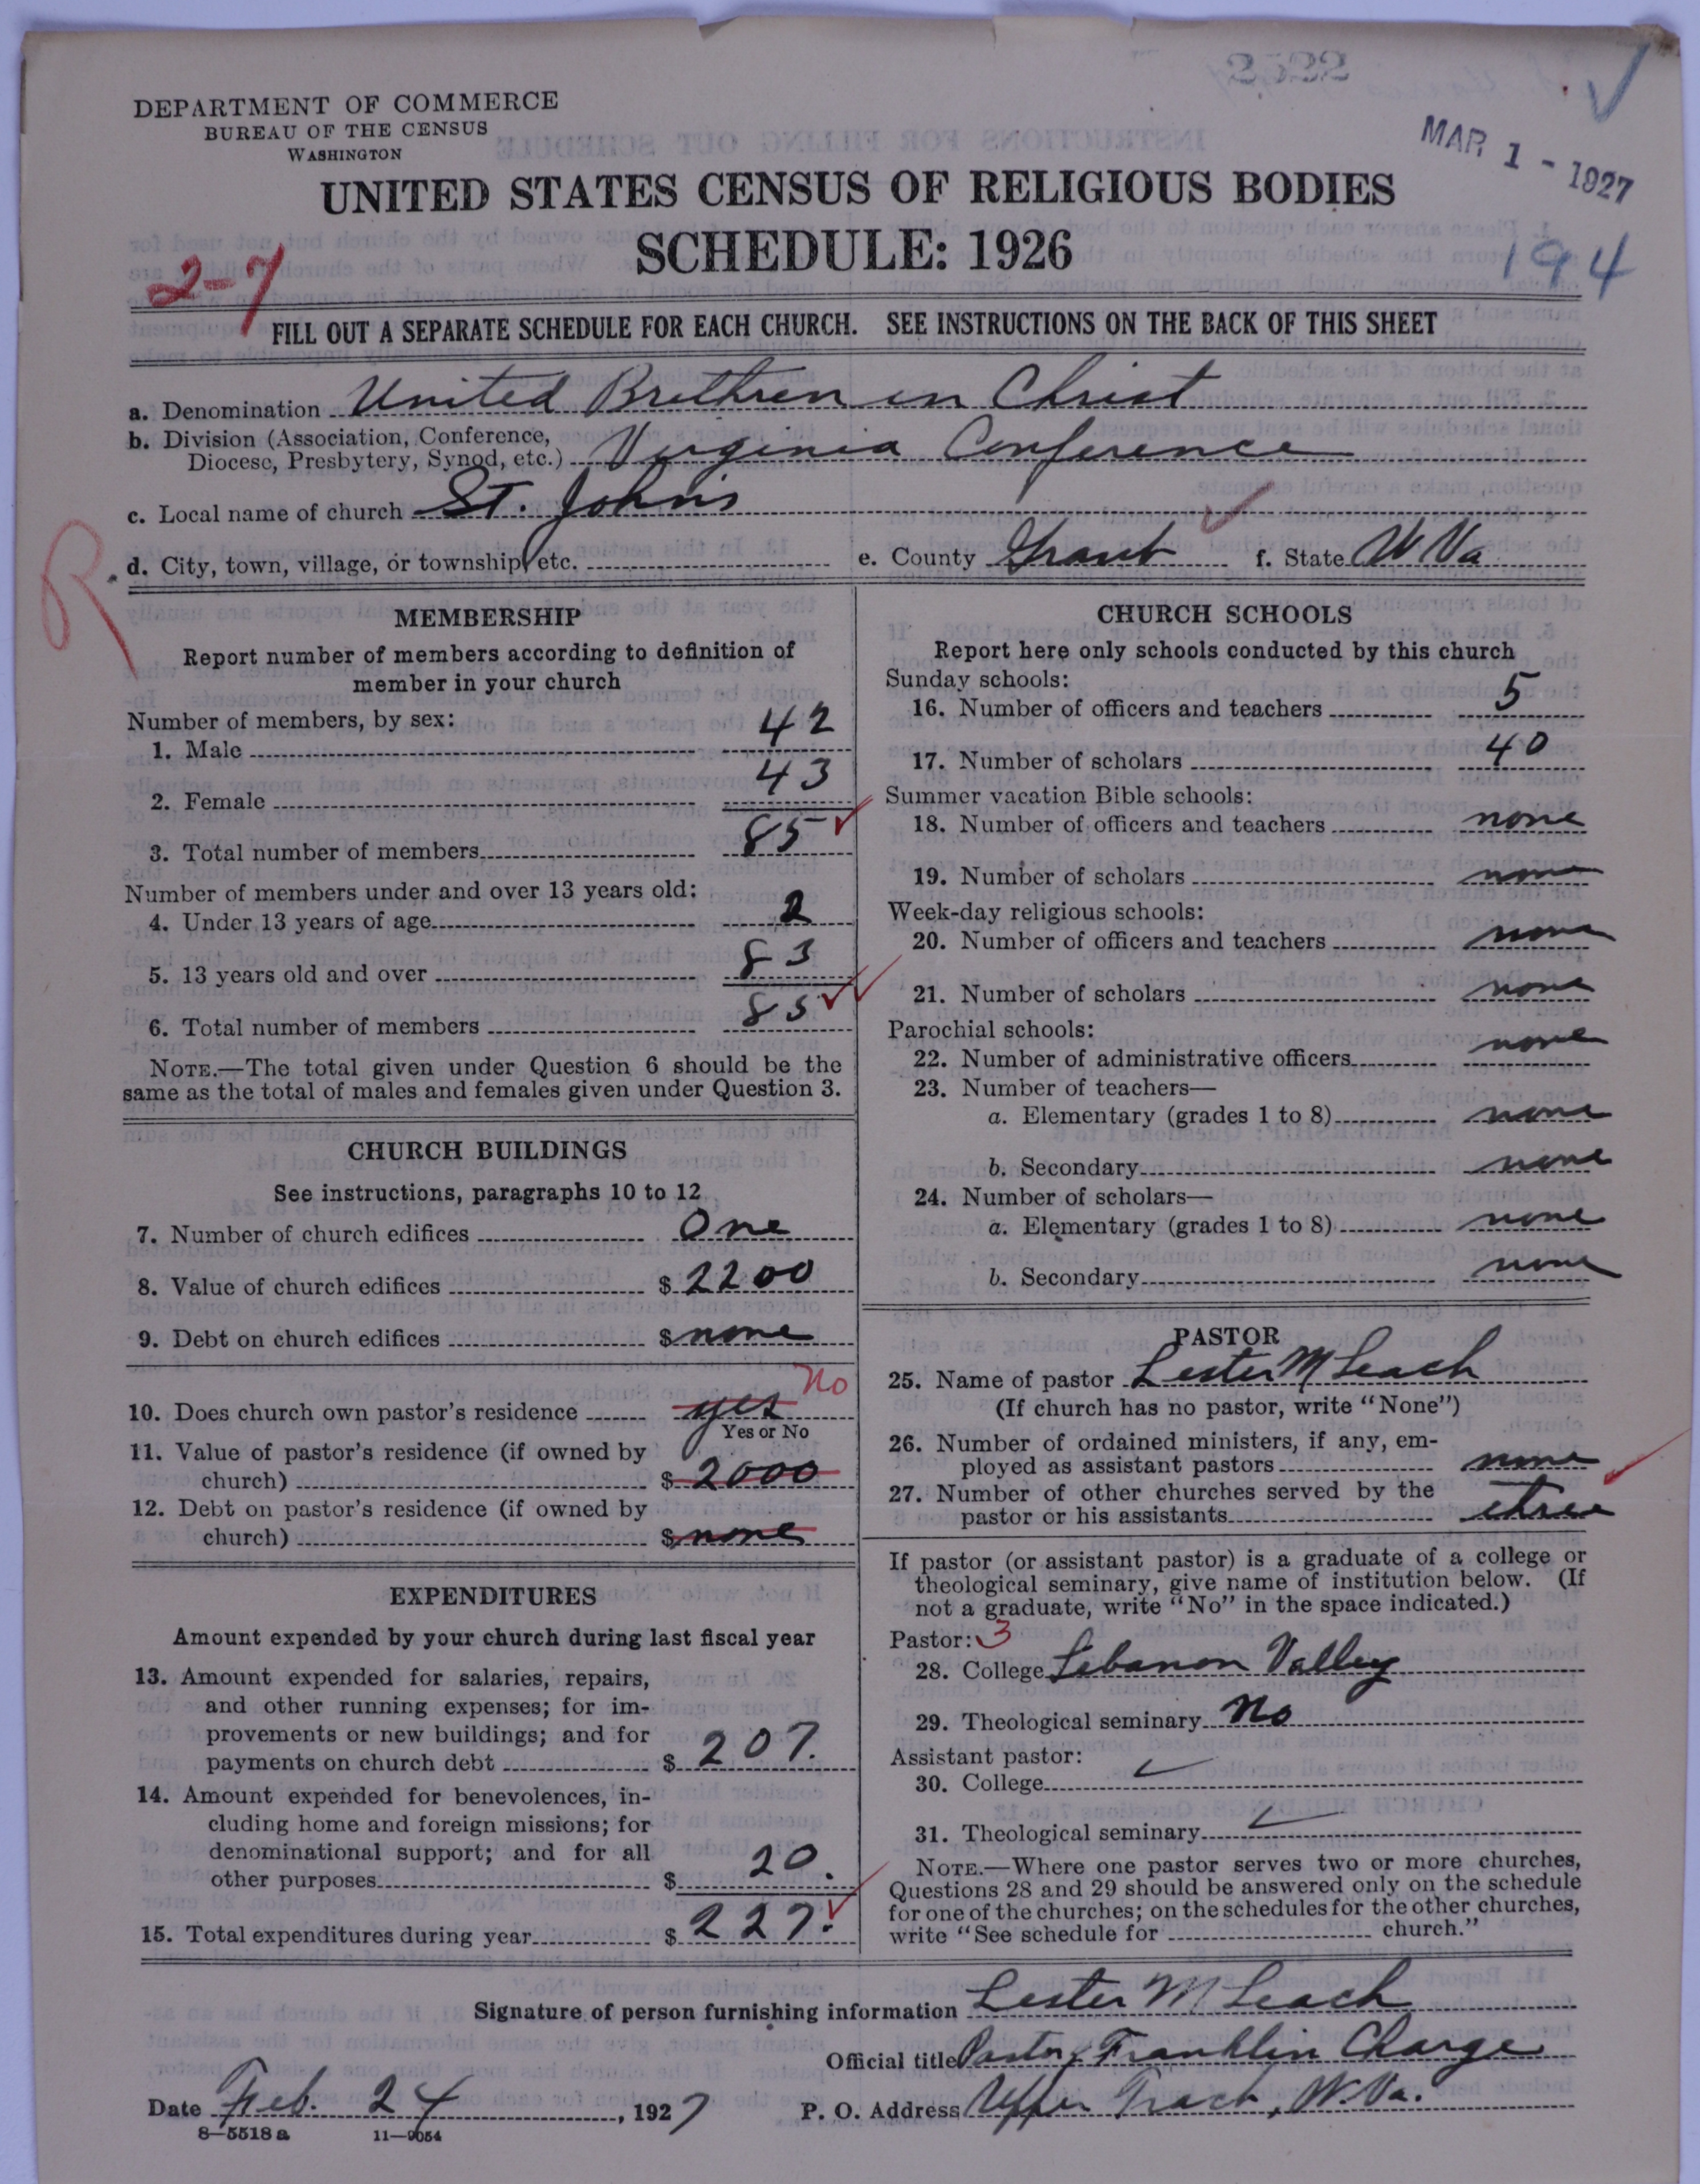 2522
DEPARTMENT OF COMMERCE
BUREAU OF THE CENSUS
WASHINGTON
MAR 1 - 1927
UNITED STATES CENSUS OF RELIGIOUS BODIES
SCHEDULE: 1926
2-7
194
FILL OUT A SEPARATE SCHEDULE FOR EACH CHURCH. SEE INSTRUCTIONS ON THE BACK OF THIS SHEET
a. Denomination United Brethren in Christ
b. Division (Association, Conference,
Diocese, Presbytery, Synod, etc.) Virginia Conference
c. Local name of church St. Johns
R
d. City, town, village, or township, etc. e. County Grant f. State W Va
MEMBERSHIP
Report number of members according to definition of
member in your church
Number of members, by sex:
1. Male 42
2. Female 43
3. Total number of members 85
Number of members under and over 13 years old:
4. Under 13 years of age 2
5. 13 years old and over 83
6. Total number of members 85
NOTE.—The total given under Question 6 should be the
same as the total of males and females given under Question 3.
CHURCH BUILDINGS
See instructions, paragraphs 10 to 12
7. Number of church edifices One
8. Value of church edifices $ 2200
9. Debt on church edifices $ none
10. Does church own pastor's residence yes No
Yes or No
11. Value of pastor's residence (if owned by
church) $ 2000
12. Debt on pastor's residence (if owned by
church) $ none
EXPENDITURES
Amount expended by your church during last fiscal year
13. Amount expended for salaries, repairs,
and other running expenses; for im-
provements or new buildings; and for
payments on church debt $ 207.
14. Amount expended for benevolences, in-
cluding home and foreign missions; for
denominational support; and for all
other purposes $ 20.
15. Total expenditures during year $ 227.
CHURCH SCHOOLS
Report here only schools conducted by this church
Sunday schools:
16. Number of officers and teachers 5
17. Number of scholars 40
Summer vacation Bible schools:
18. Number of officers and teachers none
19. Number of scholars none
Week-day religious schools:
20. Number of officers and teachers none
21. Number of scholars none
Parochial schools:
22. Number of administrative officers none
23. Number of teachers—
a. Elementary (grades 1 to 8) none
b. Secondary none
24. Number of scholars—
a. Elementary (grades 1 to 8) none
b. Secondary none
PASTOR
25. Name of pastor Lester M Leach
(If church has no pastor, write "None")
26. Number of ordained ministers, if any, em-
ployed as assistant pastors none
27. Number of other churches served by the
pastor or his assistants three
If pastor (or assistant pastor) is a graduate of a college or
theological seminary, give name of institution below. (If
not a graduate, write "No" in the space indicated.)
Pastor: 3
28. College Lebanon Valley
29. Theological seminary No
Assistant pastor:
30. College
31. Theological seminary
NOTE.—Where one pastor serves two or more churches,
Questions 28 and 29 should be answered only on the schedule
for one of the churches; on the schedules for the other churches,
write "See schedule for church."
Signature of person furnishing information Lester M Leach
Official title Pastor, Franklin Charge
Date Feb. 24, 1927 P. O. Address Upper Trach, W. Va.
8—5518 a 11—9054